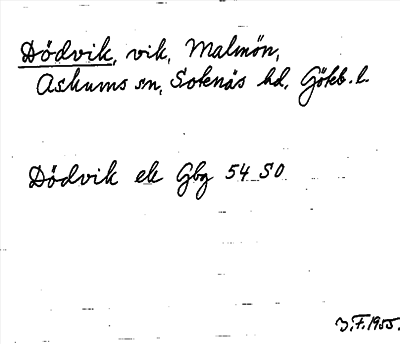 Dödvik, vik, Malmön,
Askums sn, Sotenäs hd, Göteb. l.
Dödvik ek Gbg 54 SO
J.F. 1955.